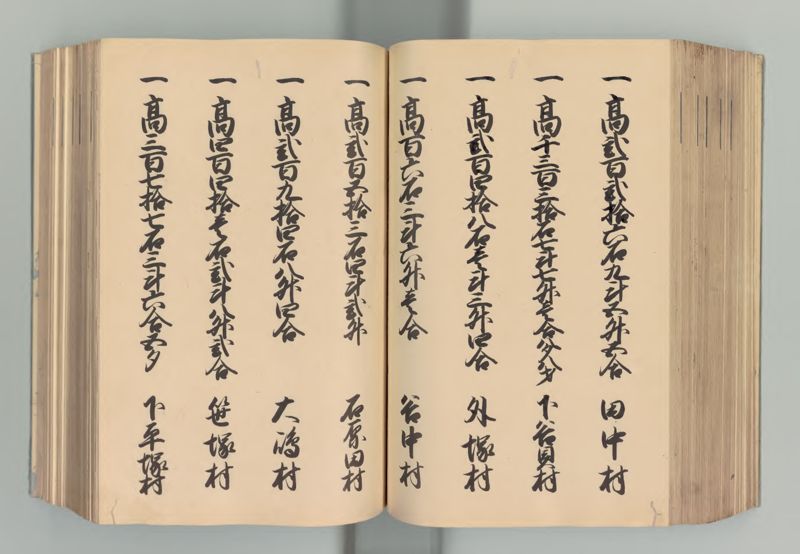 一高弐百弐拾六石九斗五升五合 田中村
一高千三百三拾石七斗七升壱合 下谷貝村
一高弐百四拾八石壱斗三升四合 外塚村
一高百六石三斗六升壱合 谷中村
一高弐百五拾三石四斗弐升 石原田村
一高弐百九拾四石八升四合 大嶋村
一高四百四拾壱石弐斗八升弐合 笹塚村
一高三百七拾七石三斗六合五夕 下平塚村